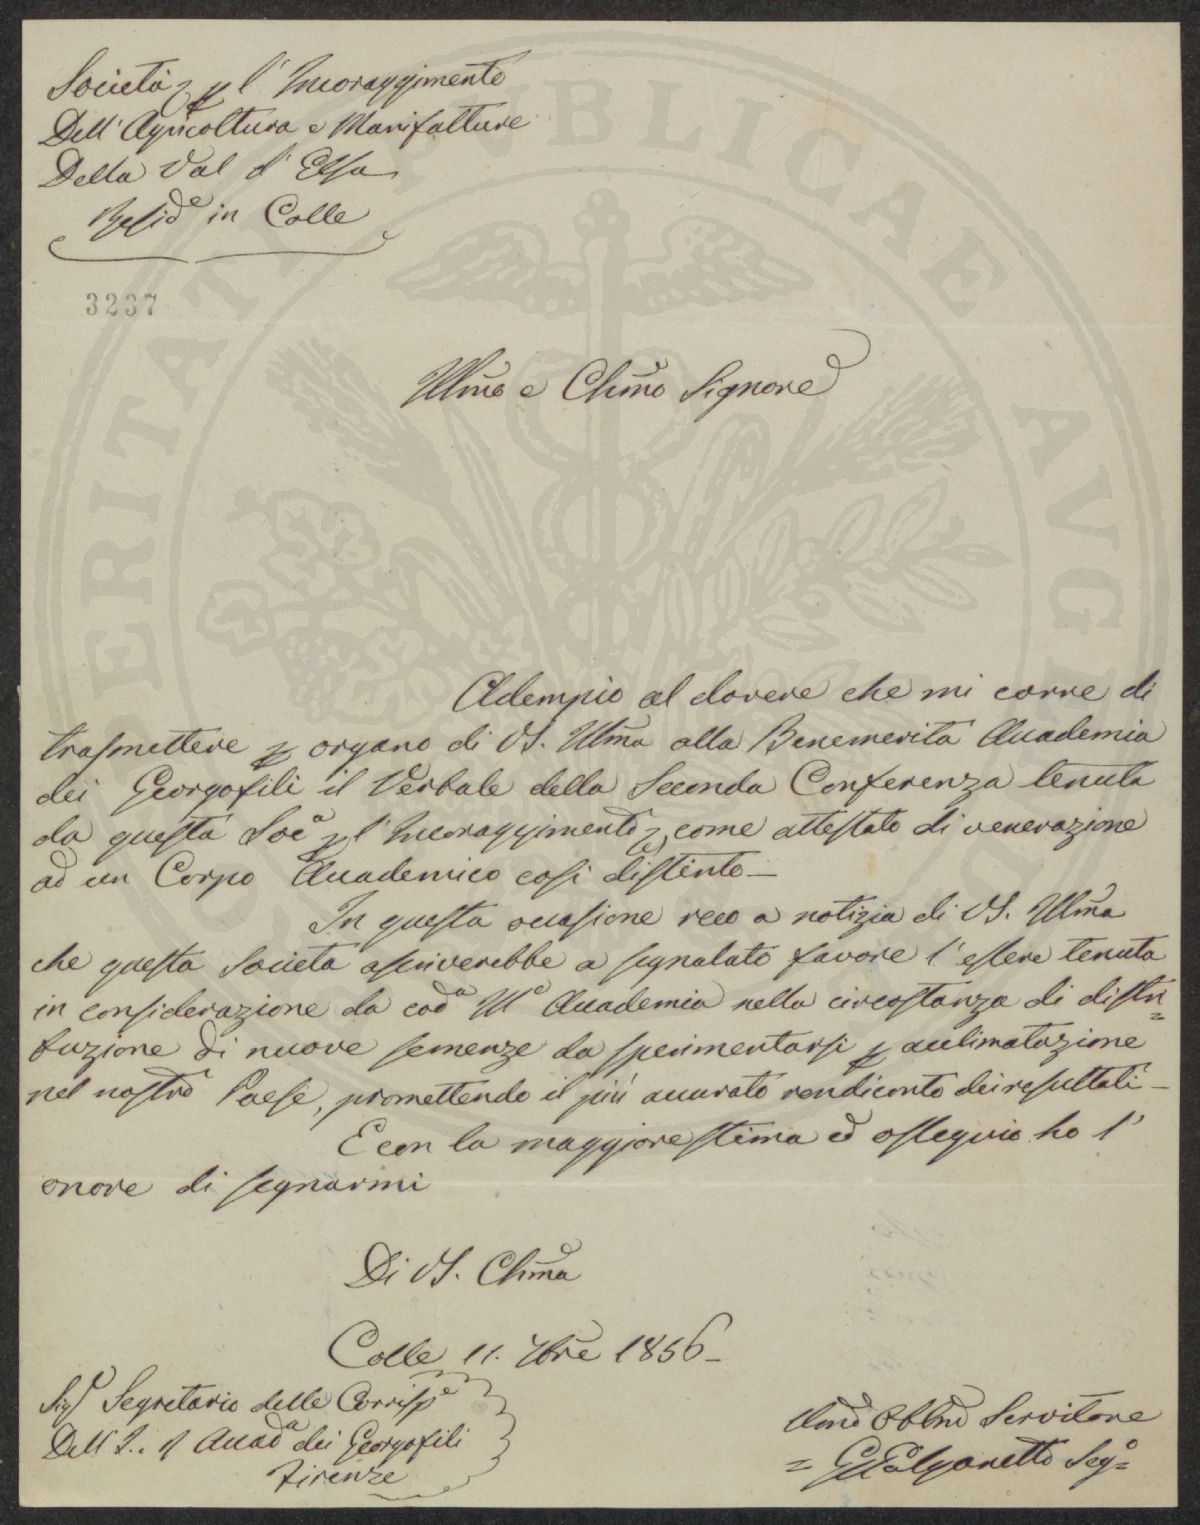 Società p l'Incoraggimento
Dell'Agricoltura e Manifatture
Della Val d'Elsa
Resid.e in Colle
3237
PROSPERITATI PUBLICAE AVGENDAE
Illmo e Chmo Signore
Adempio al dovere che mi corre di
trasmettere p organo di VS. Illma alla Benemerita Accademia
dei Georgofili il Verbale della Seconda Conferenza tenuta
da questa Soc.a p l'Incoraggimento, come attestato di venerazione
ad un Corpo Accademico così distinto—
In questa occasione reco a notizia di VS. Illma
che questa Società ascriverebbe a segnalato favore l'essere tenuta
in considerazione da cod.a Ill.e Accademia nella circostanza di distri=
buzione di nuove semenze da sperimentarsi p acclimatazione
nel nostro Paese, promettendo il più accurato rendiconto dei resultati—
E con la maggiore stima ed ossequio ho l'
onore di segnarmi
Di VS. Chma
Colle 11. 7bre 1856—
Sig.r Segretario delle Corrisp.e
Dell'I. e R. Accad.a dei Georgofili
Firenze
Dmo Obbmo Servitore
Seg.o=